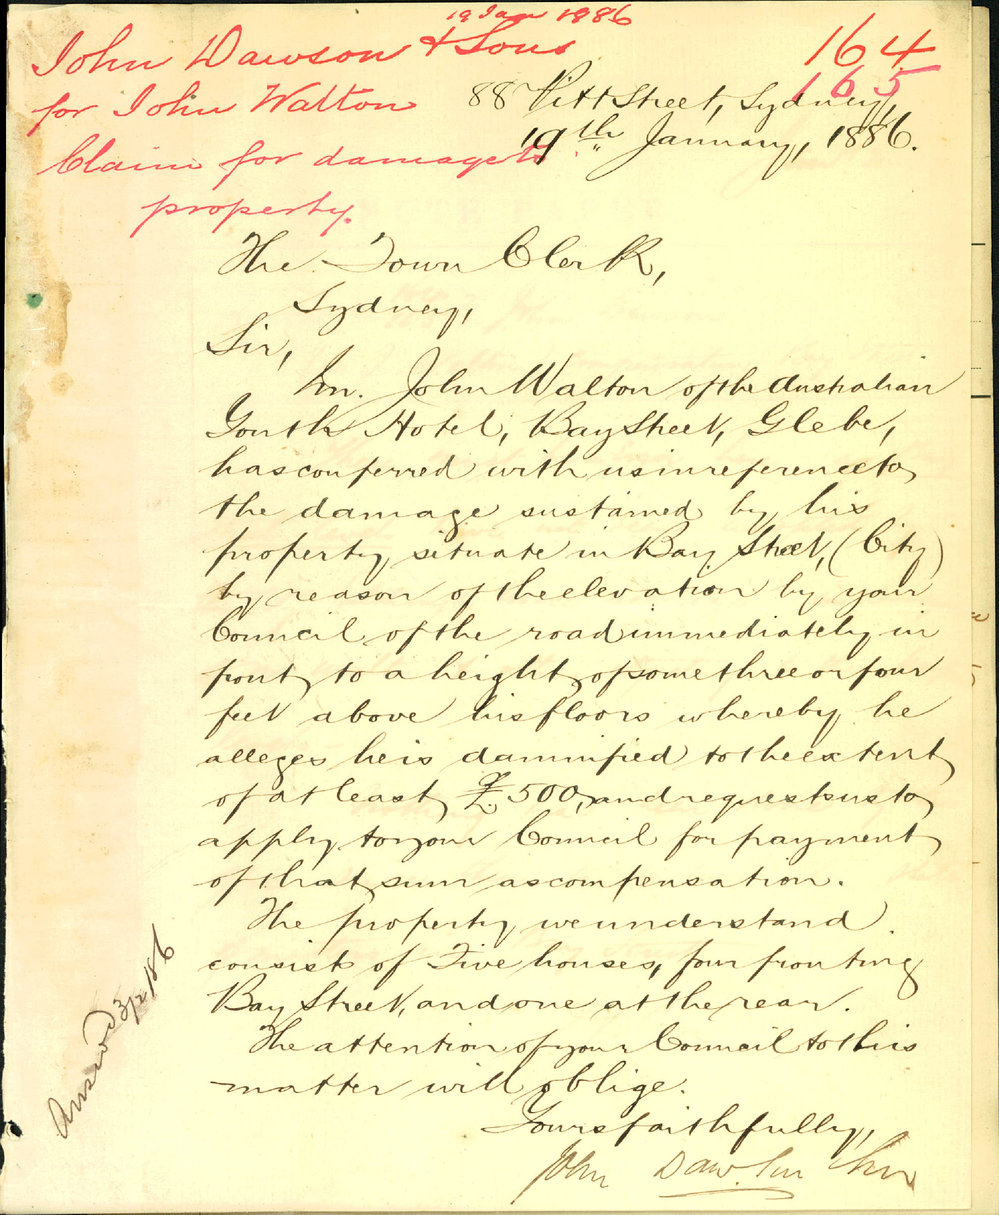 19 Jan 1886
John Dawson & Sons
for John Walton
Claim for damage to
property.
164
165
88 Pitt Street, Sydney,
19th January, 1886.
The Town Clerk,
Sydney,
Sir,
Mr. John Walton of the Australian
Youth Hotel, Bay Street, Glebe,
has conferred with us in reference to
the damage sustained by his
property situate in Bay Street, (City)
by reason of the elevation by your
Council of the road immediately in
front, to a height of some three or four
feet above his floors whereby he
alleges he is damnified to the extent
of at least £500, and requests us to
apply to your Council for payment
of that sum as compensation.
The property we understand
consists of Five houses, four fronting
Bay Street, and one at the rear.
The attention of your Council to this
matter will oblige.
Yours faithfully,
John Dawson
Answd 3/2/86